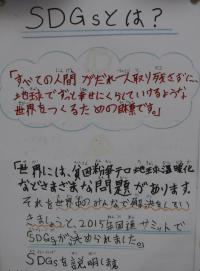 SDGsとは?
「すべての人間がだれ一人取り残さずに、
地球でずっと幸せにくらしていけるような
世界をつくるための目標です。」
「世界には、貧困紛争テロ地球温暖化
などさまざまな問題があります。
それを世界のみんなで解決をしてい
きましょうと、2015年国連サミットで
SDGsが決められました。
SDGsを説明し